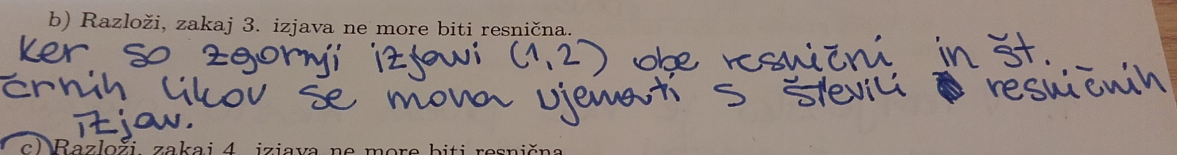 b) Razloži, zakaj 3. izjava ne more biti resnična.
Ker so zgornji izjavi (1,2) obe resnični in št.
črnih likov se mora ujemati s števili resničnih
izjav.
c) Razloži, zakaj 4. izjava ne more biti resnična